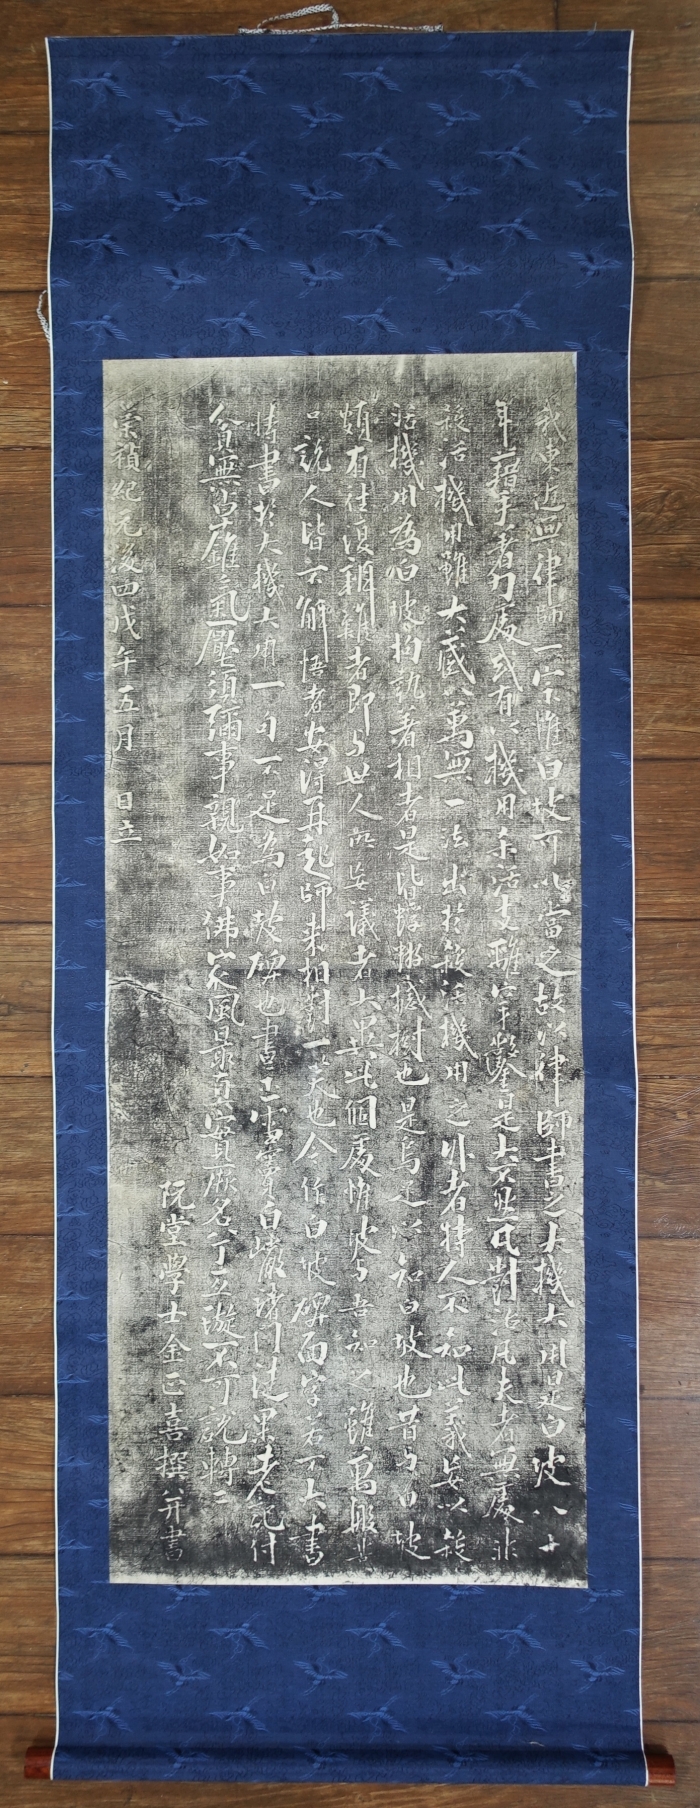 我東近無律師一宗惟白坡可以當之故以律師書之大機大用是白坡八十
年藉手着力處或有以機用杀活支離穿鑿是大不然凡對治凡夫者無處非
殺活機用雖大藏八萬無一法出於殺活機用之外者特人不知此義妄以殺
活機用為白坡拘執著相者是皆蜉蝣撼樹也是烏足以知白坡也昔与白坡
頗有往復辨難者即与世人所妄議者大異此個處惟坡与吾知之雖萬般苦
口說人皆不解悟者安得再起師來相對一笑也今作白坡碑面字若不大書
特書於大機大用一句不足為白坡碑也書示雪竇白巖諸門徒果老記付
貧無卓錐氣壓須彌事親如事佛家風最真實厥名兮亘璇不可說轉〻
阮堂學士金正喜撰并書
崇禎紀元後四戊午五月 日立